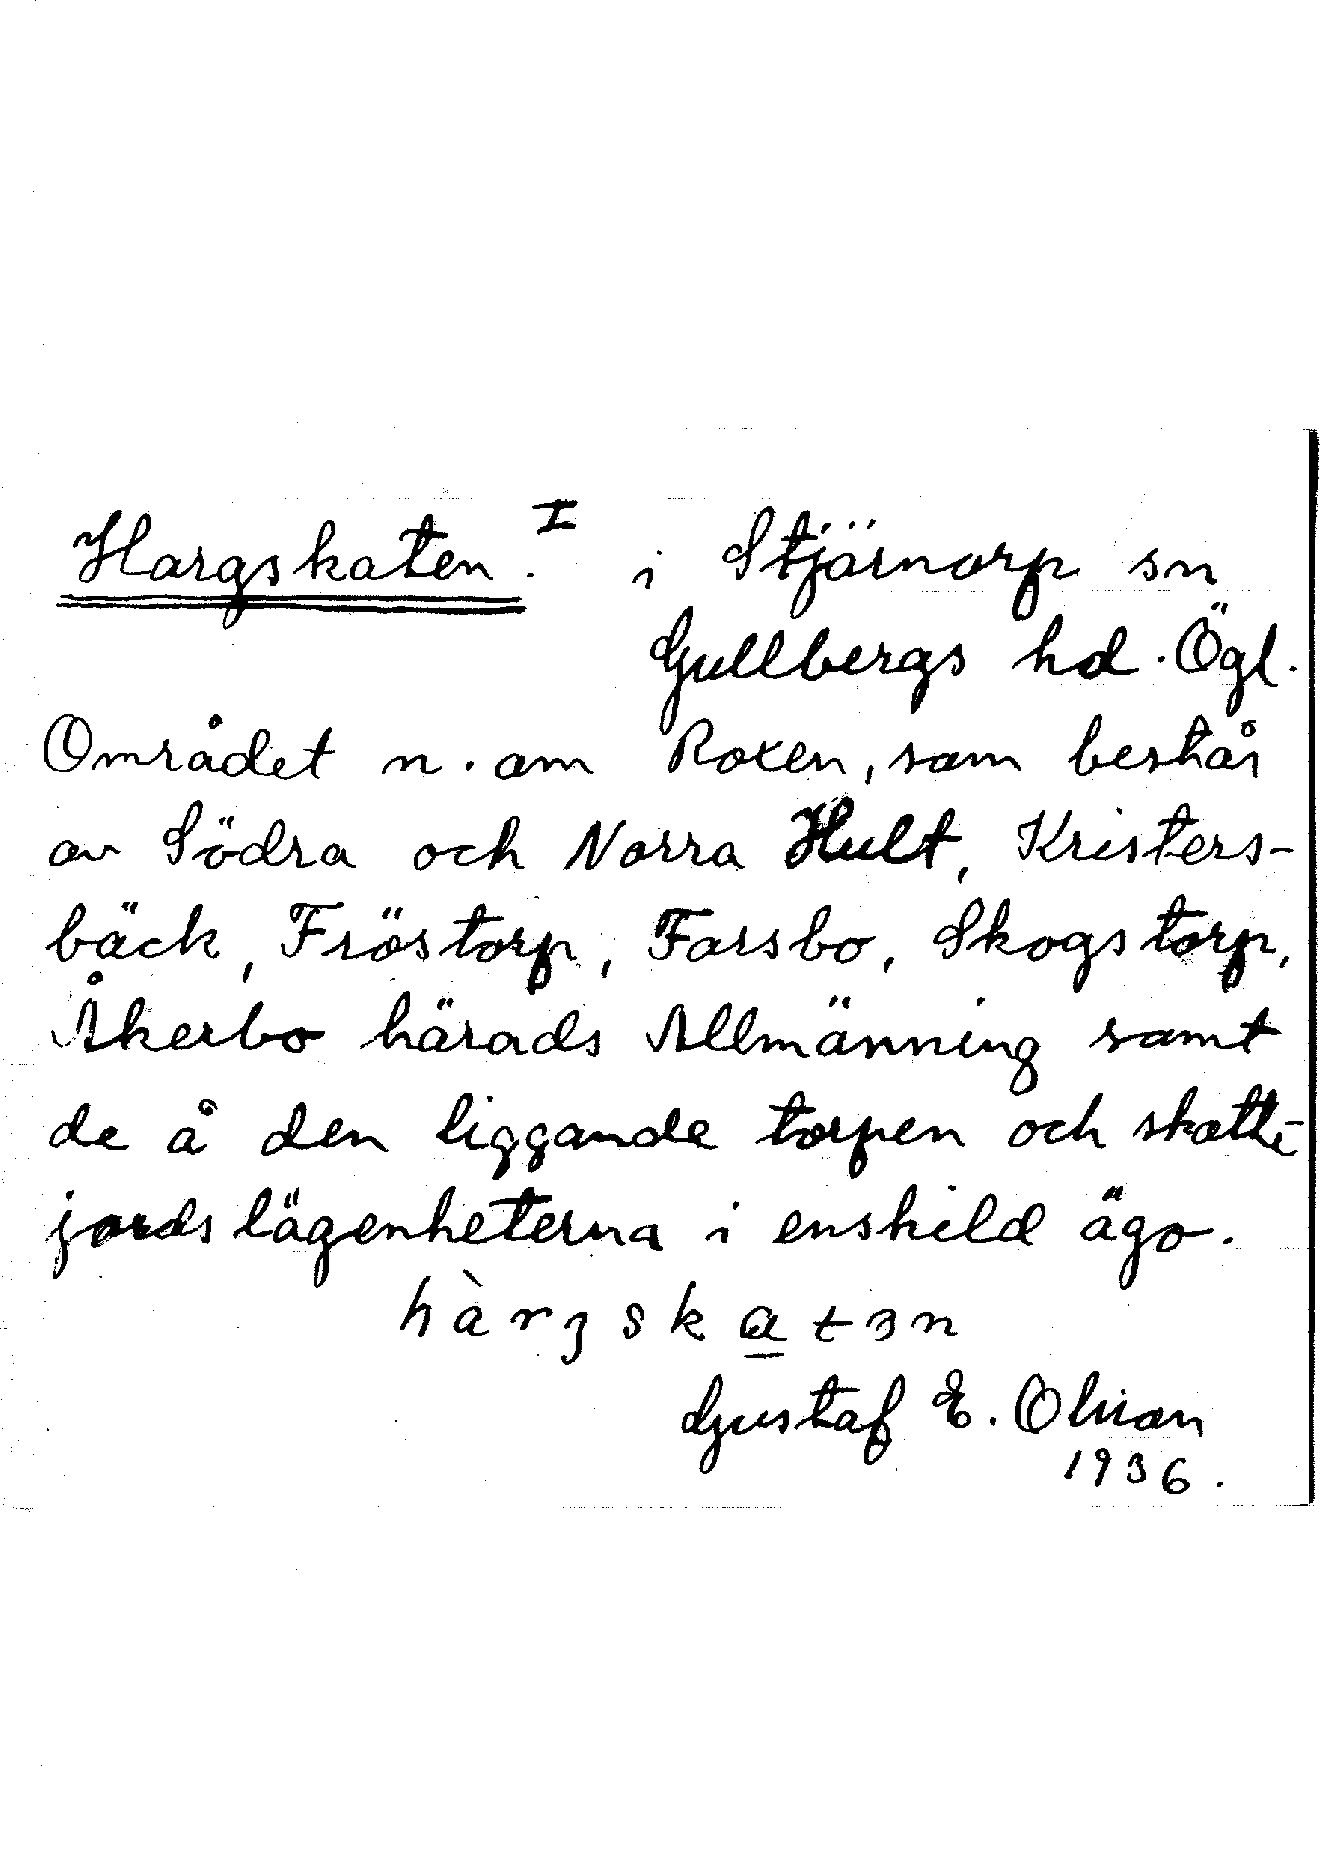 Hargskaten. I i Stjärnorp sn
Gullbergs hd. Ögl.
Området n. om Roxen, som består
av Södra och Norra Hult, Kristers-
bäck, Fröstorp, Farsbo, Skogstorp,
Åkerbo härads Allmänning samt
de å den liggande torpen och skatte-
jordslägenheterna i enskild ägo.
hàrʒskatɜn
Gustaf E. Olsson
1936.